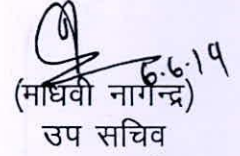 6.6.19
(माधवी नागेन्द्र)
उप सचिव